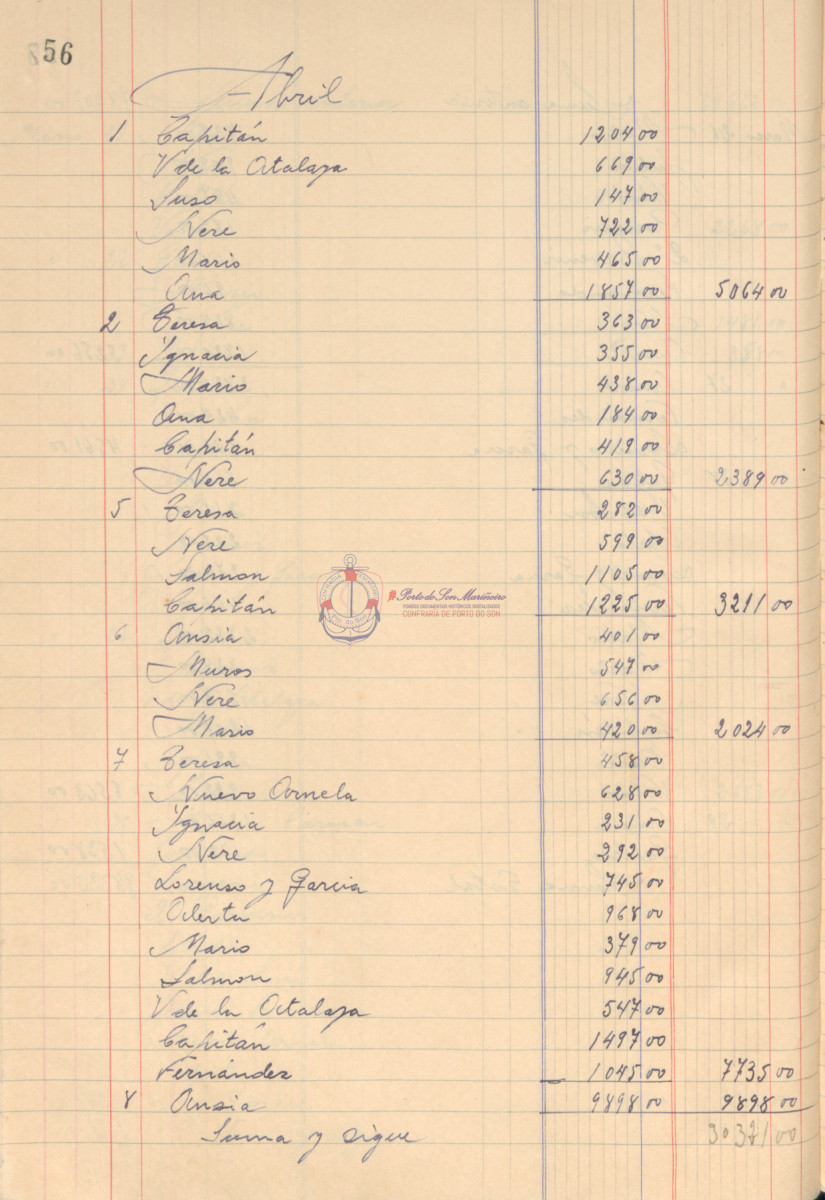 56
Abril
1 Capitán 1204 00
V de la Atalaya 669 00
Suso 147 00
Nere 722 00
Mario 465 00
Ana 1857 00 5064 00
2 Teresa 363 00
Ignacia 355 00
Mario 438 00
Ana 184 00
Capitán 419 00
Nere 630 00 2389 00
5 Teresa 282 00
Nere 599 00
Salmon 1105 00
Capitán 1225 00 3211 00
Porto do Son Mariñeiro
FONDOS DOCUMENTAIS HISTÓRICOS DIXITALIZADOS
CONFRARIA DE PORTO DO SON
6 Ansia 401 00
Muros 547 00
Nere 656 00
Mario 420 00 2024 00
7 Teresa 458 00
Nuevo Arnela 628 00
Ignacia 231 00
Nere 292 00
Lorenso y Garcia 745 00
Alerta 968 00
Mario 379 00
Salmon 945 00
V de la Atalaya 547 00
Capitán 1497 00
Fernández 1045 00 7735 00
8 Ansia 9898 00 9898 00
Suma y sigue 30321 00